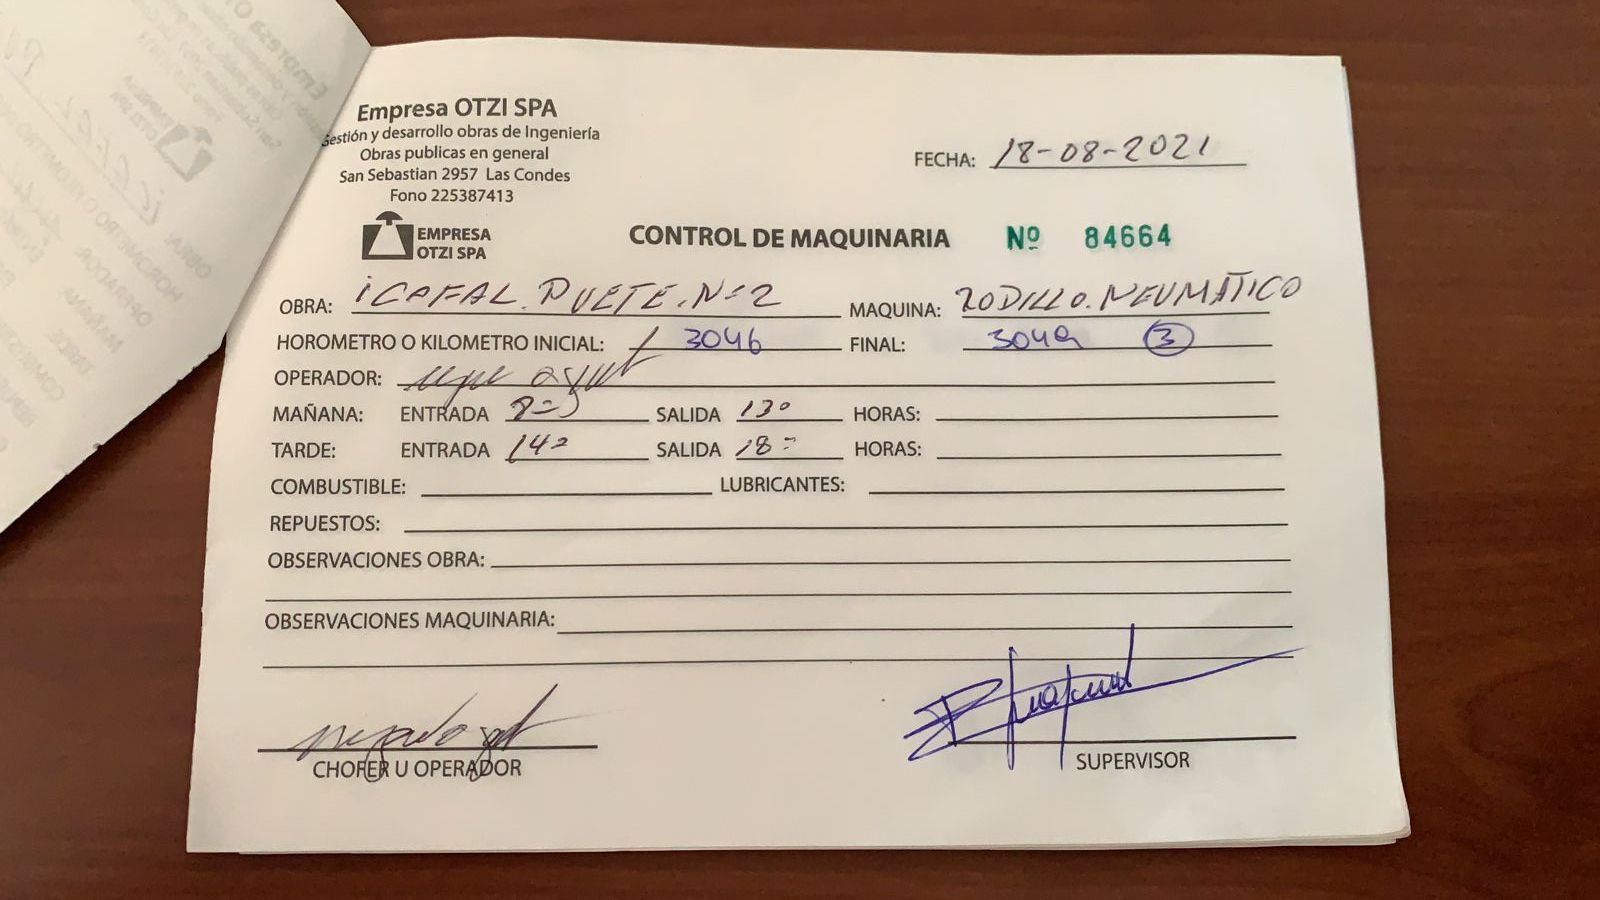 Empresa OTZI SPA
Gestión y desarrollo obras de Ingeniería
Obras publicas en general
San Sebastian 2957 Las Condes
Fono 225387413
FECHA: 18-08-2021
EMPRESA
OTZI SPA
CONTROL DE MAQUINARIA Nº 84664
OBRA: ICAFAL. PUETE. Nº2 MAQUINA: RODILLO. NEUMÁTICO
HOROMETRO O KILOMETRO INICIAL: 3046 FINAL: 3049 3
OPERADOR:
MAÑANA: ENTRADA 8 SALIDA 13º HORAS:
TARDE: ENTRADA 14º SALIDA 18 HORAS:
COMBUSTIBLE: LUBRICANTES:
REPUESTOS:
OBSERVACIONES OBRA:
OBSERVACIONES MAQUINARIA:
CHOFER U OPERADOR
SUPERVISOR